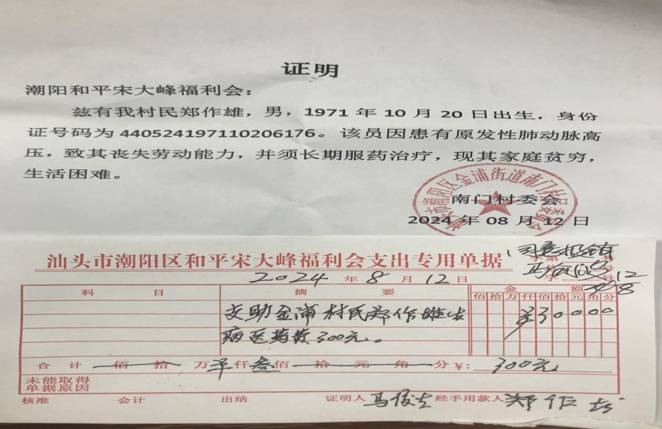 证明
潮阳和平宋大峰福利会：
兹有我村民郑作雄，男，1971 年 10 月 20 日出生，身份
证号码为 440524197110206176。该员因患有原发性肺动脉高
压，致其丧失劳动能力，并须长期服药治疗，现其家庭贫穷，
生活困难。
南门村委会
2024 年 08 月 12 日
汕头市潮阳区和平宋大峰福利会支出专用单据
2024 年 8 月 12 日
科目 摘要 金额
佰拾万仟佰拾元角分
支助金浦村民郑作雄
病医药费300元。 ¥30000
合计 佰 拾 万 仟 叁 佰 拾 元 角 分 ¥： 300元
未能取得
单据原因
核准 会计 出纳 证明人 经手用款人 郑作雄